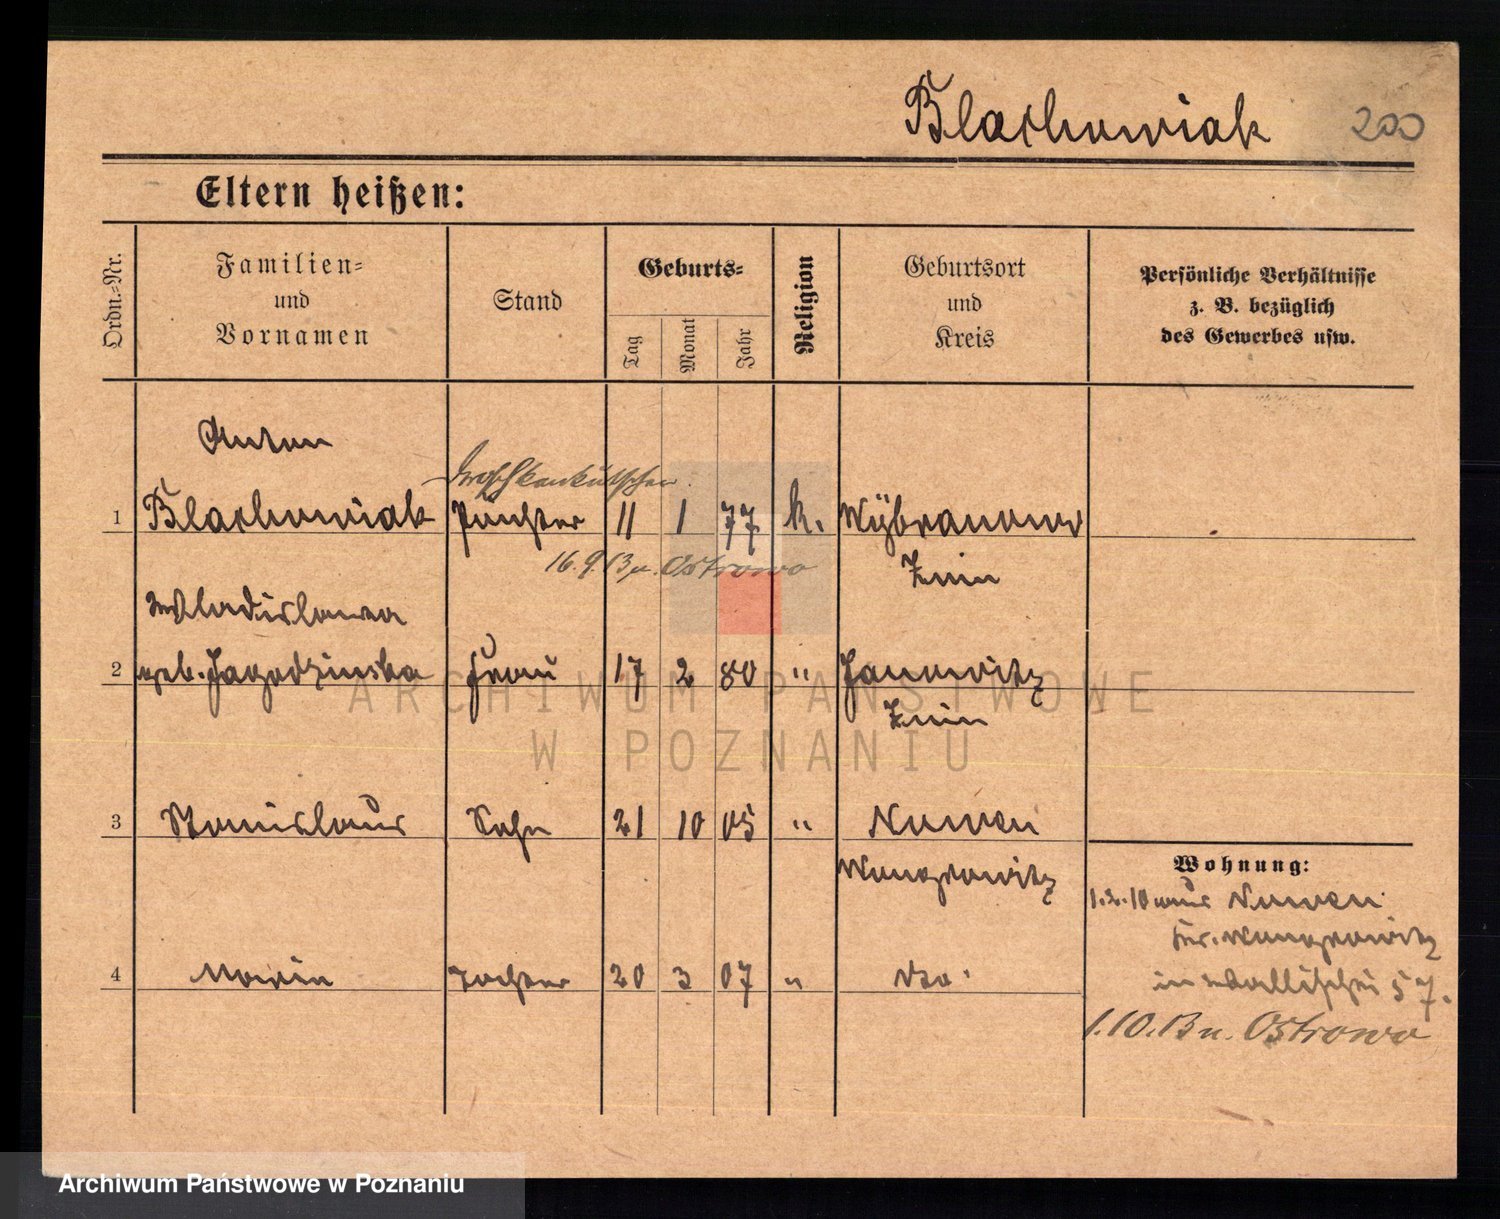 Blachowiak 200
Eltern heißen:
Ordn.-Nr.
Familien-
und
Vornamen
Stand
Geburts-
Tag
Monat
Jahr
Religion
Geburtsort
und
Kreis
Persönliche Verhältnisse
z. B. bezüglich
des Gewerbes usw.
Anton
Droschkenkutscher
1 Blachowiak Pächter 11 1 77 k. Wybranowo
16.9.13 n. Ostrowo
Znin
Wladislawa
2 geb. Jagodzinska Frau 17 2 80 " Janowitz
Znin
3 Stanislaus Sohn 21 10 05 "
Wongrowitz
Wohnung:
1.2.10 aus
Kr. Wongrowitz
4 Maria Tochter 20 3 07 " dto.
in Wallischei 57.
1.10.13 n. Ostrowo
ARCHIWUM PAŃSTWOWE
W POZNANIU
Archiwum Państwowe w Poznaniu